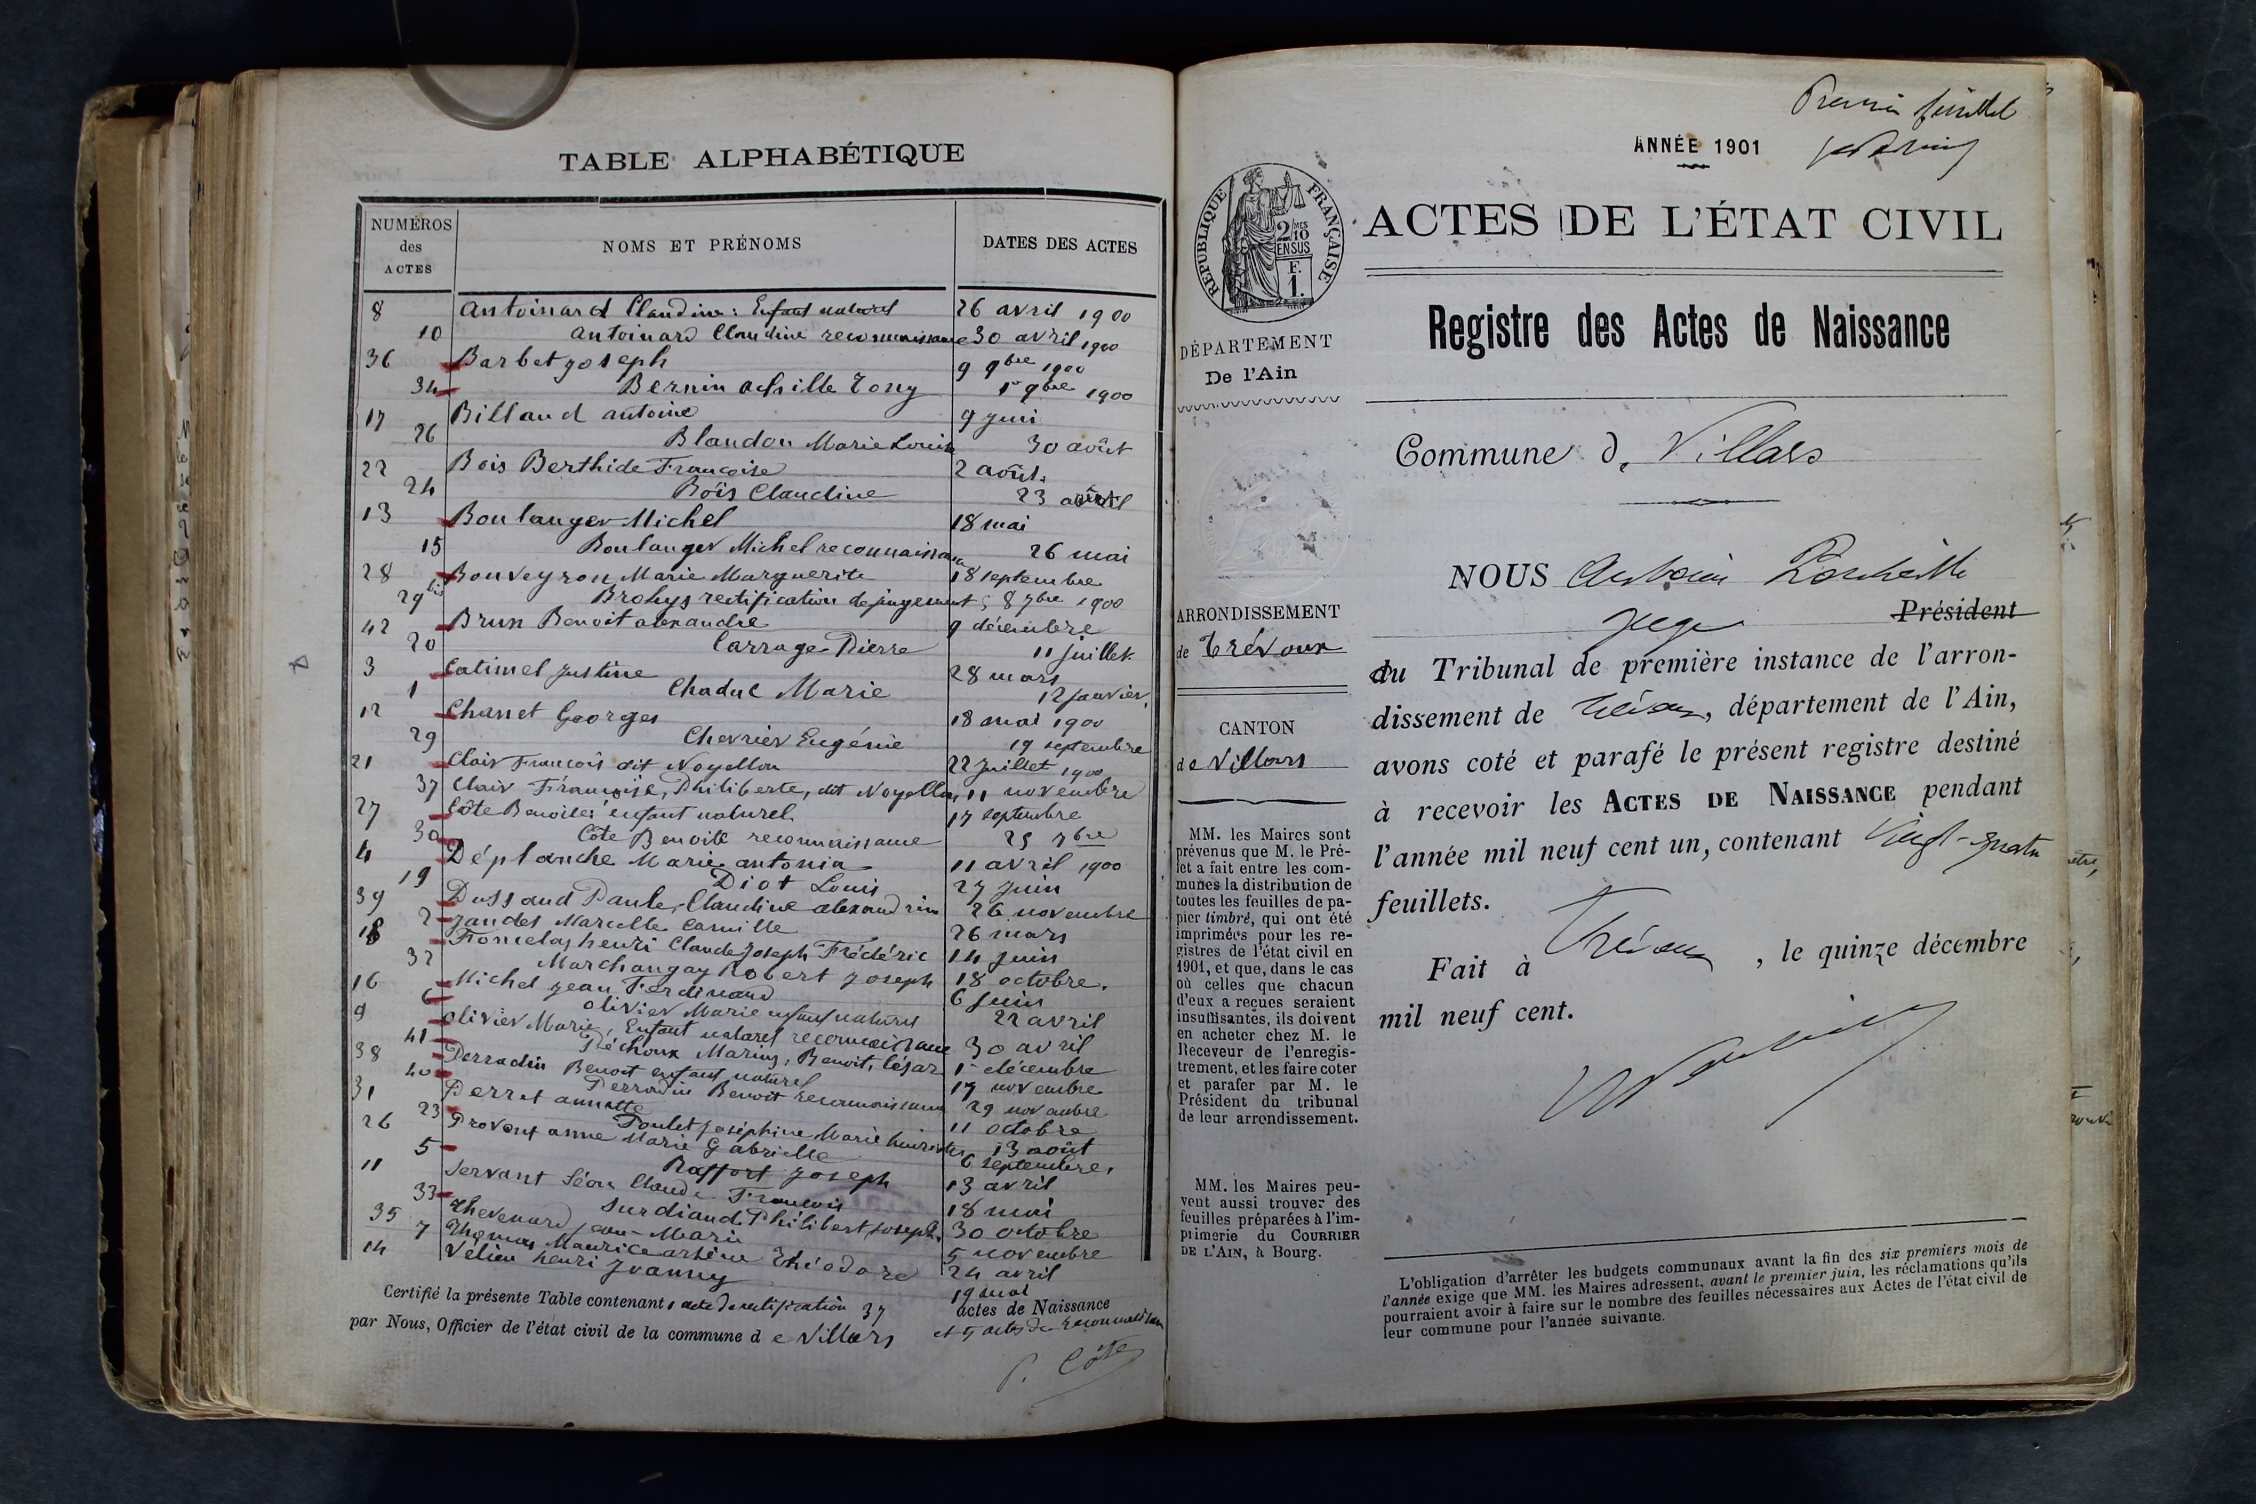 TABLE ALPHABÉTIQUE
NUMÉROS
des
ACTES
NOMS ET PRÉNOMS
DATES DES ACTES
8 Antoinard Claudine: Enfant naturel 26 avril 1900
10 Antoinard Claudine reconnaissance 30 avril 1900
36 Barbet Joseph 9 9bre 1900
34 Bernin Achille Tony 1r 9bre 1900
17 Billaud antoine 9 juin
26 Blandon Marie Louise 30 août
22 Bois Berthide Françoise 2 août.
24 Bois Claudine 23
13 Boulanger Michel 18 mai
15 Boulanger Michel reconnaissance 26 mai
28 Bouveyron Marie Marguerite 18 septembre
29 bis Brohys rectification de jugement 8 7bre 1900
42 Brun Benoit alexandre 9 décembre
20 Carrage Pierre 11 juillet
3 Catimel Justine 28 mars
1 Chaduc Marie 12 janvier
12 Chanet Georges 18 mai 1900
29 Chevrier Eugénie 19 septembre
21 Clair François dit Noyellon 22 Juillet 1900
37 Clair Françoise, Philiberte, dit Noyellon 11 novembre
27 Côte Benoite: enfant naturel 17 septembre
30 Côte Benoite reconnaissance 25 7bre
4 Déplanche Marie antonia 11 avril 1900
19 Diot Louis 27 juin
39 Dussaud Paule, Claudine alexandrine 26 novembre
2 Jandet Marcelle Camille 26 mars
18 henri Claude Joseph Frédéric 14 juin
32 Marchangay Robert Joseph 18 octobre.
16 Michel Jean Ferdinand 6 juin
6 Olivier Marie enfant naturel 22 avril
9 Olivier Marie, Enfant naturel reconnaissance 30 avril
41 Péchoux Marius, Benoit, César 1r décembre
38 Perradin Benoit enfant naturel 17 novembre
40 Perrodin Benoit reconnaissance 29 novembre
31 Perret annette 11 octobre
23 Poulet Joséphine Marie 13 août
26 Provent anne Marie Gabrielle 6 septembre.
5 Raffort Joseph 13 avril
11 Servant Léon Claude François 18 mai
33 Surdiaud Philibert Joseph. 30 octobre
35 Thevenard Jean-Marie 5 novembre
7 Thomas Maurice arsène Théodore 24 avril
14 Vélien henri Joanny 19 mai
Certifié la présente Table contenant 1 acte de rectification 37 actes de Naissance
par Nous, Officier de l'état civil de la commune d e Villars et 5 actes de reconnaissance
P. Côte
Premier feuillet
ANNÉE 1901
RÉPUBLIQUE FRANÇAISE
2/10 MES
EN SUS
F.
1.
ACTES DE L'ÉTAT CIVIL
Registre des Actes de Naissance
DÉPARTEMENT
De l'Ain
Commune d. Villars
ARRONDISSEMENT
de Trévoux
CANTON
de Villars
MM. les Maires sont
prévenus que M. le Pré-
fet a fait entre les com-
munes la distribution de
toutes les feuilles de pa-
pier timbré, qui ont été
imprimées pour les re-
gistres de l'état civil en
1901, et que, dans le cas
où celles que chacun
d'eux a reçues seraient
insuffisantes, ils doivent
en acheter chez M. le
Receveur de l'enregis-
trement, et les faire coter
et parafer par M. le
Président du tribunal
de leur arrondissement.
MM. les Maires peu-
vent aussi trouver des
feuilles préparées à l'im-
primerie du COURRIER
DE L'AIN, à Bourg.
NOUS
Juge Président
du Tribunal de première instance de l'arron-
dissement de Trévoux, département de l'Ain,
avons coté et parafé le présent registre destiné
à recevoir les ACTES DE NAISSANCE pendant
l'année mil neuf cent un, contenant Vingt-quatre
feuillets.
Fait à Trévoux, le quinze décembre
mil neuf cent.
L'obligation d'arrêter les budgets communaux avant la fin des six premiers mois de
l'année exige que MM. les Maires adressent, avant le premier juin, les réclamations qu'ils
pourraient avoir à faire sur le nombre des feuilles nécessaires aux Actes de l'état civil de
leur commune pour l'année suivante.